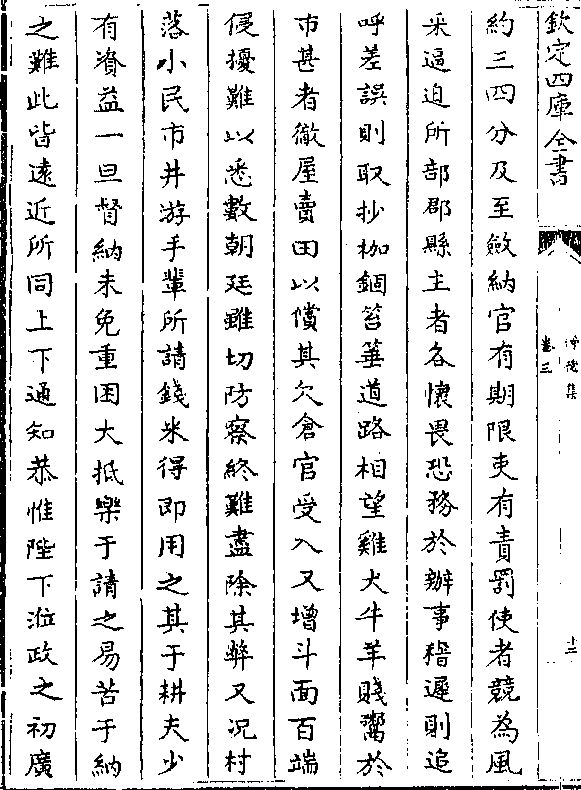 欽定四庫全書
卷三
十二
約三四分及至斂納官有期限吏有責罰使者競為風
采逼迫所部郡縣主者各懷畏恐務於辦事稽遲則追
呼差誤則取抄枷錮笞箠道路相望雞犬牛羊賤鬻於
市甚者徹屋賣田以償其欠倉官受入又增斗面百端
侵擾難以悉數朝廷雖切防察終難盡除其弊又況村
落小民市井游手輩所請錢米得即用之其于耕夫少
有資益一旦督納未免重困大抵樂于請之易苦于納
之難此皆遠近所同上下通知恭惟陛下涖政之初廣